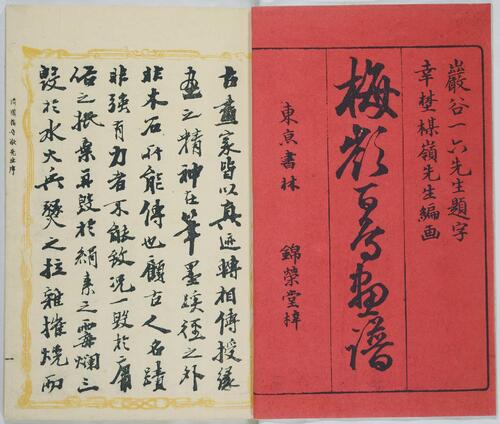 巖谷一六先生題字
幸埜楳嶺先生編画
梅嶺百鳥畫譜
東亰書林
錦榮堂梓
古畫家皆以真迹轉相傳授緣
畫之精神在筆墨蹊徑之外
非木石所能傳也顧古人名蹟
非強有力者不能致況一毀於庸
俗之抵棄再毀於絹素之霉爛三
毀於水火兵燹之拉雜摧燒而